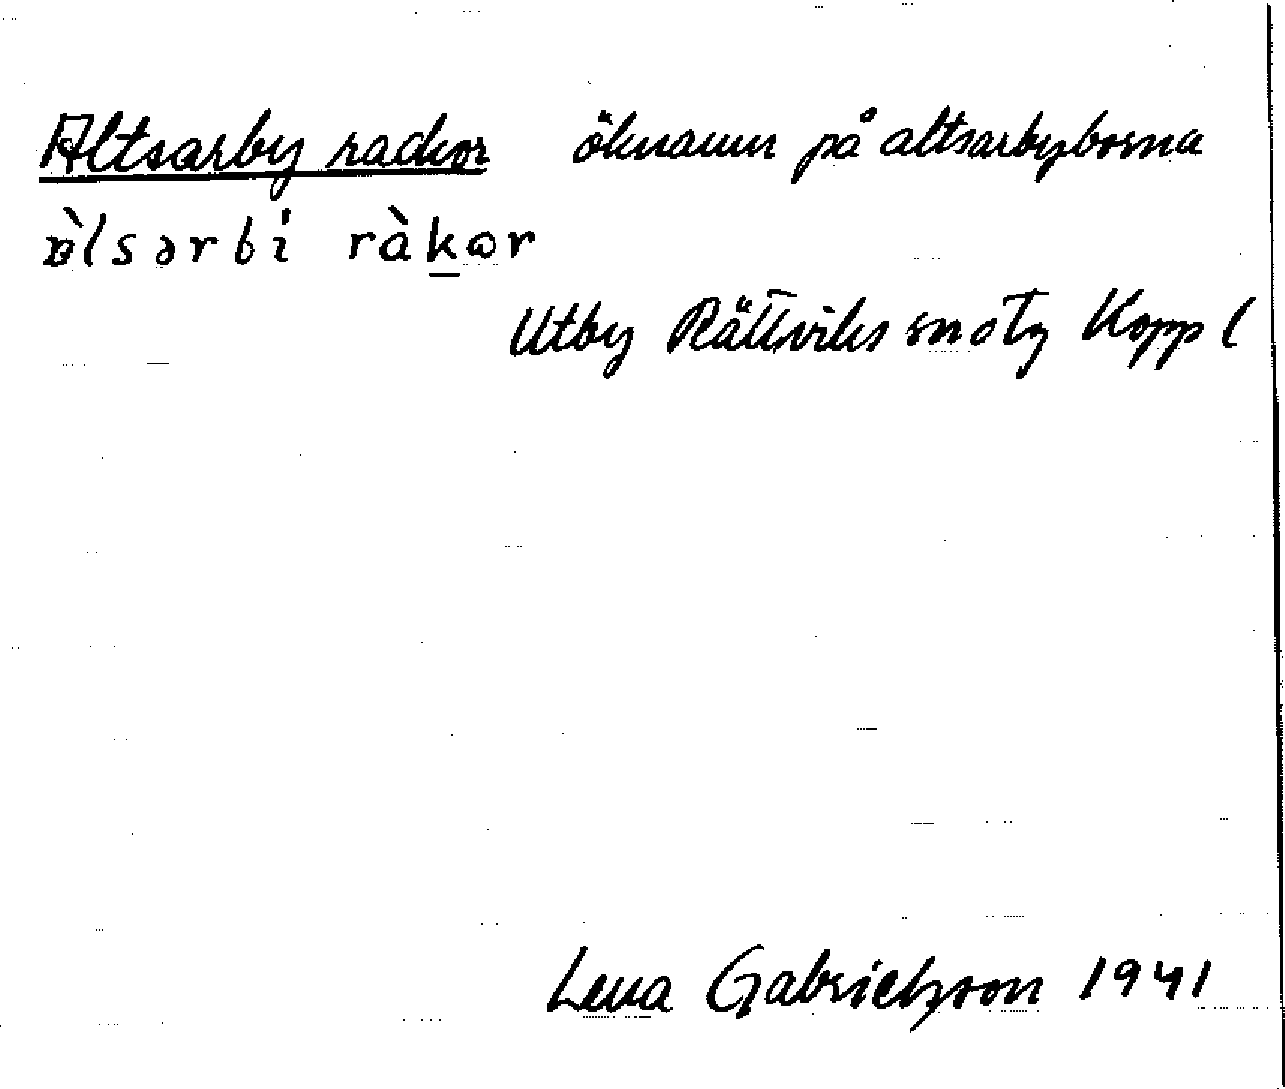 Altsarby rackor öknamn på altsarbyborna
àlsərbi ràkɷr
Utby Rättviks sn Kopp l
Lena Gabrielsson 1941